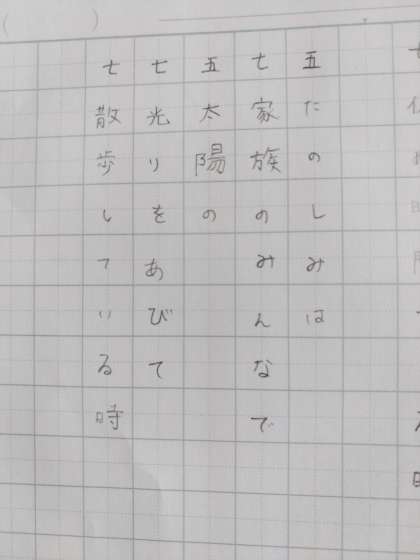 五たのしみは
七家族のみんなで
五太陽の
七光りをあびて
七散歩している時